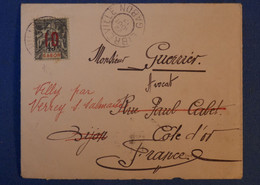 10
Monsieur Guerrier
avocat
Velly par
Verrey s/ Salmaise
Rue Paul Cabet
Dijon
Côte d'Or
France